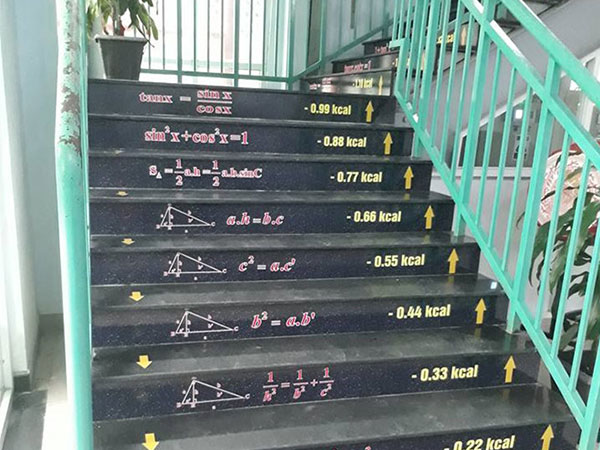 tanx = sin x / cosx - 0.99 kcal
sin²x+cos²x=1 - 0.88 kcal
S△ = 1/2 a.h = 1/2 a.b.sinC - 0.77 kcal
a.h = b.c - 0.66 kcal
c² = a.c' - 0.55 kcal
b² = a.b' - 0.44 kcal
1/h² = 1/b² + 1/c² - 0.33 kcal
- 0.22 kcal